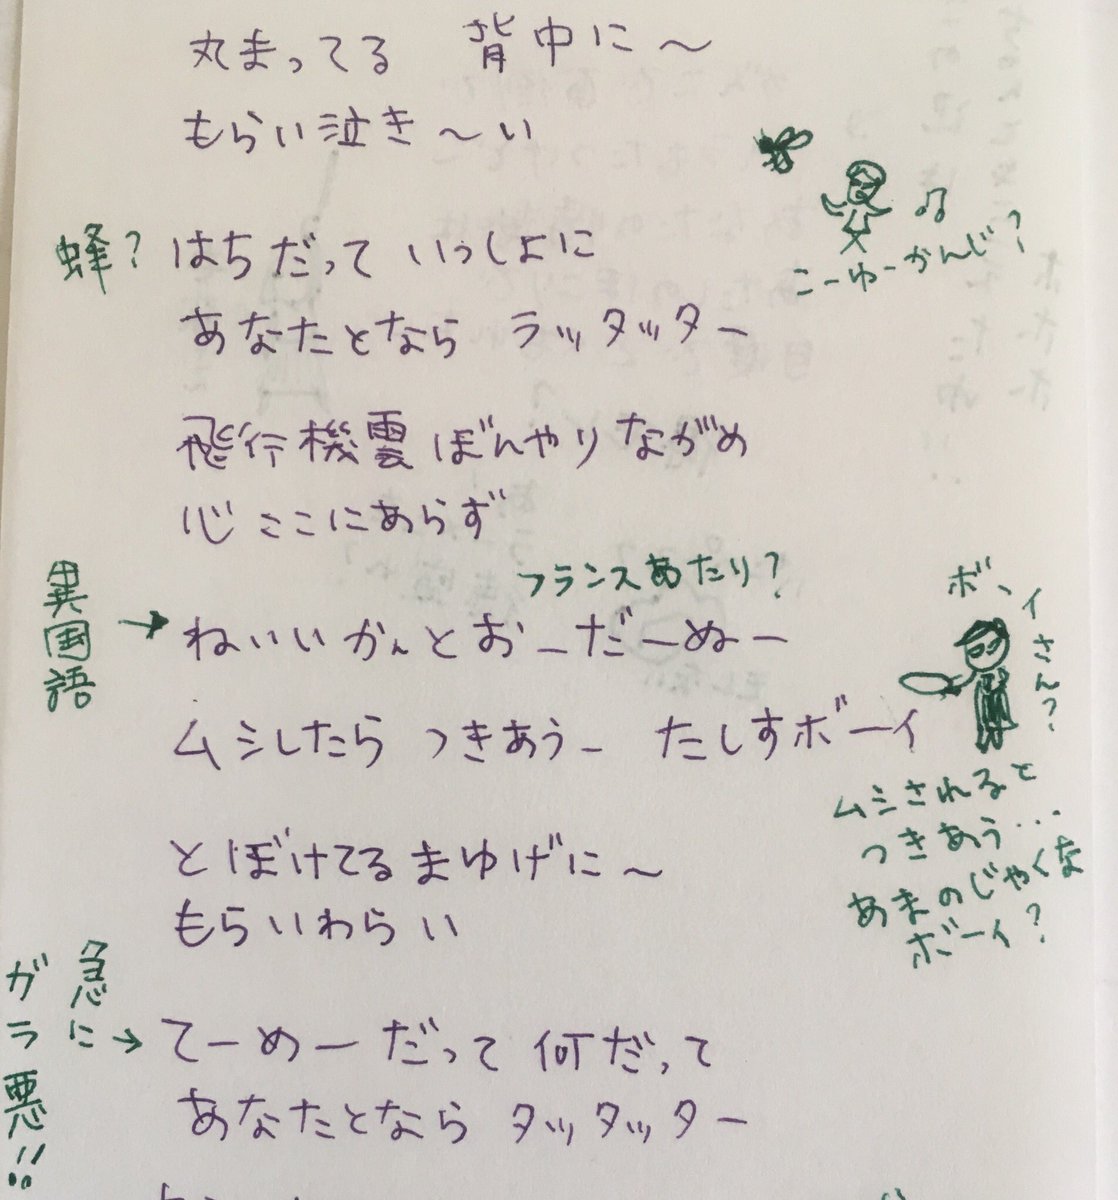 丸まってる 背中に〜
もらい泣き〜い
蜂? はちだって いっしょに
こーゆーかんじ?
あなたとなら ラッタッター
飛行機雲 ぼんやり ながめ
心 ここにあらず
フランスあたり?
異国語 → ねいいかんとおーだーぬー
ボーイさん?
ムシしたら つきあうー たしすボーイ
ムシされると
つきあう...
あまのじゃくな
ボーイ?
とぼけてる まゆげに〜
もらいわらい
急に
ガラ悪!!
→ てーめーだって 何だって
あなたとなら タッタッター